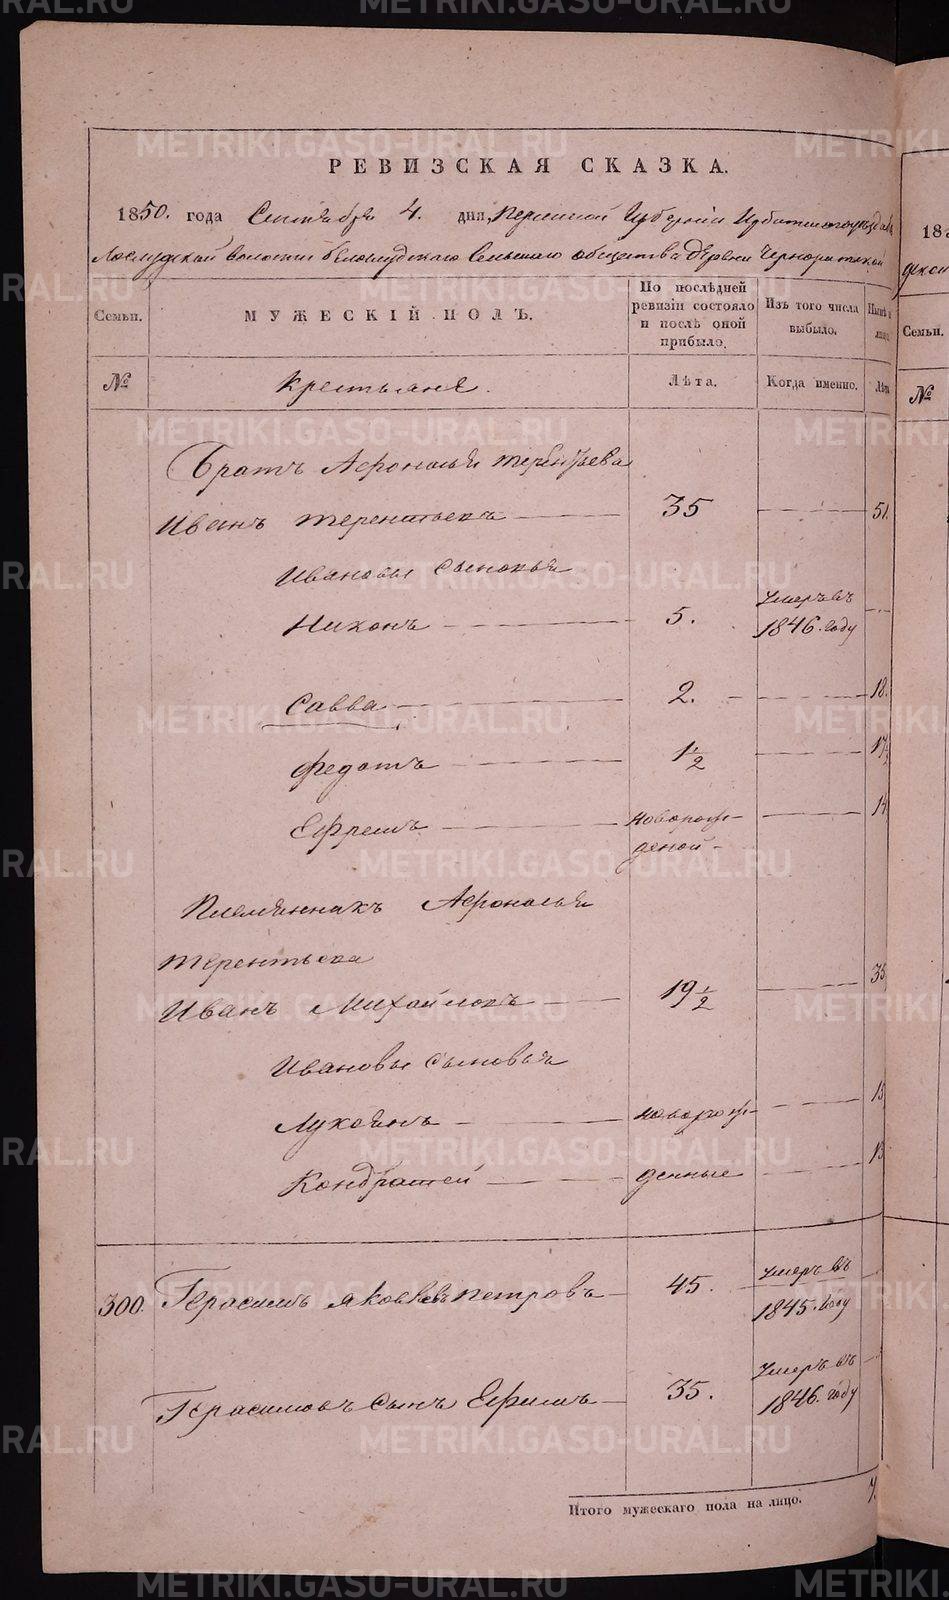 РЕВИЗСКАЯ СКАЗКА.
1850. года Сентября 4. дня, Пермской Губернии Ирбитскаго уезда
волости Беломудскаго Сельскаго общества Деревни
Семьи.
МУЖЕСКІЙ ПОЛЪ.
По послѣдней ревизіи состояло и послѣ оной прибыло.
Изъ того числа выбыло.
Нынѣ
№
Крестьяне.
Лѣта.
Когда именно.
Лѣта
Братъ Афонасья Терентьева
Иванъ Терентьевъ 35 51.
Ивановы сыновья
Никонъ 5. Умеръ въ 1846. году
Савва 2. 18.
Федотъ 1 1/2 17
Ефремъ новорожденой 14
Племянникъ Афонасья
Терентьева
Иванъ Михайловъ 19 1/2 35
Ивановы сыновья
Лукоянъ новорож-
Кондратей денные 13
300. Герасимъ Яковлевъ Петровъ 45. Умеръ въ 1845. году
Герасимовъ сынъ Ефимъ 35. Умеръ въ 1846. году
Итого мужескаго пола на лицо. 7.
183
Семьи.
№
METRIKI.GASO-URAL.RU